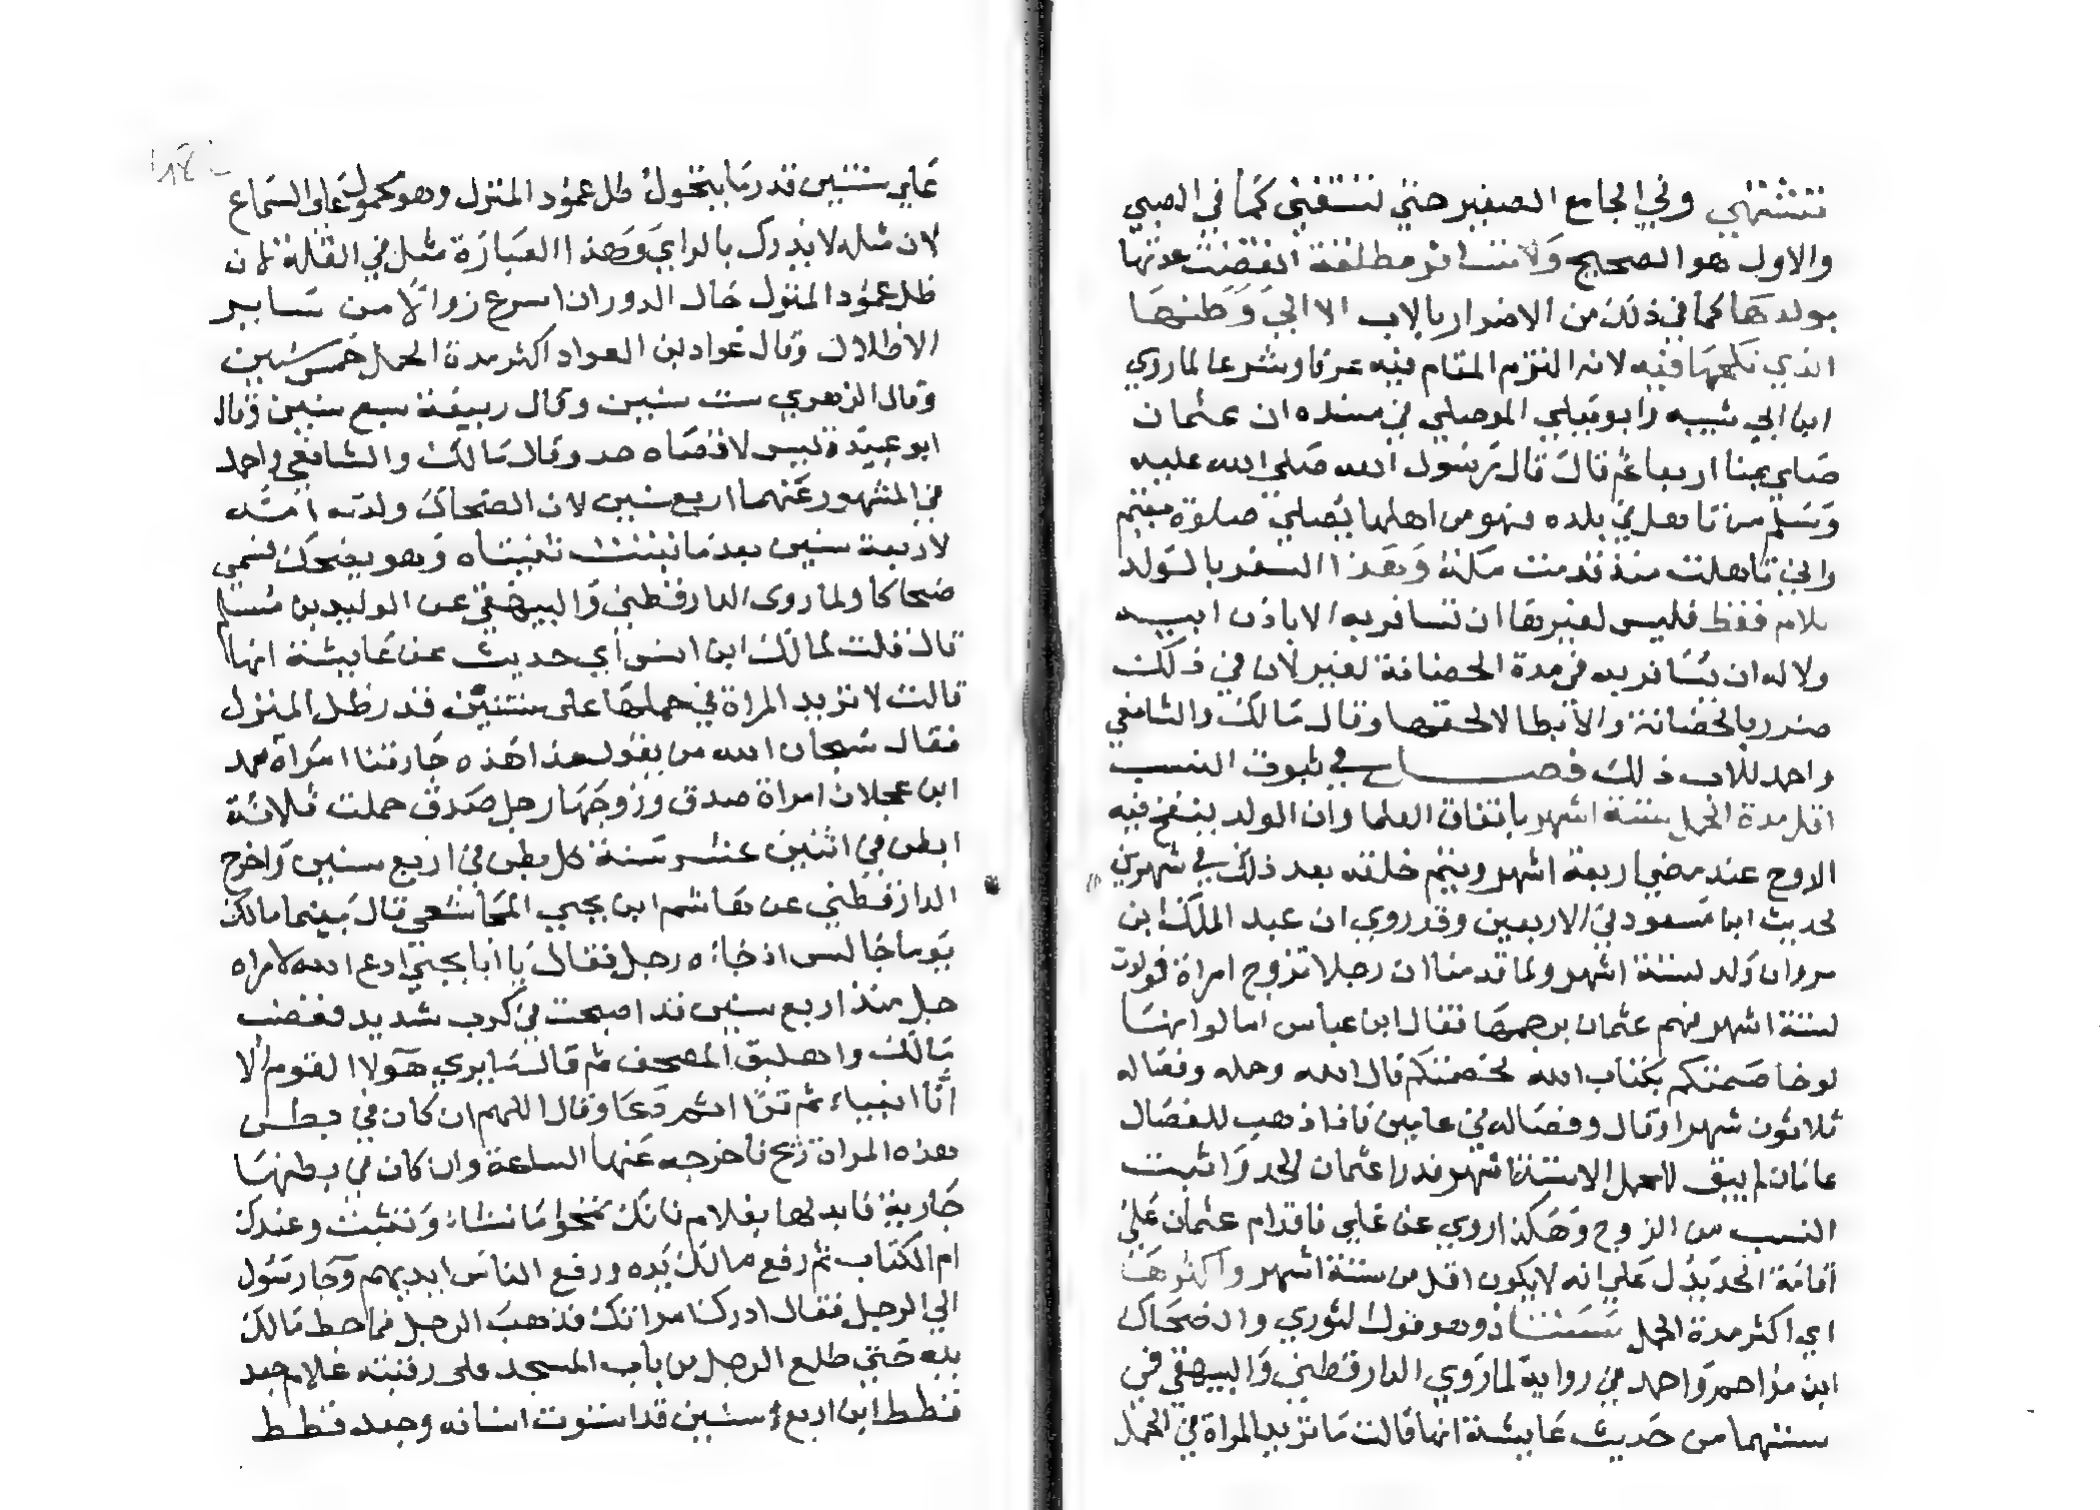 تشتهي وفي الجامع الصغير حتي تستغني كما في الصبي
والاول هو الصحيح ولا تسافر مطلقة انقضت عدتها
بولدها كما في ذلك من الاضرار بالاب الا الي وطنها
الذي نكحها فيه لانه التزم المقام فيه عرفا وشرعا لما روي
ابن ابي شيبه وابو يعلي الموصلي في مسنده ان عثمان
صلي بمنا اربعا ثم قال قال رسول الله صلي الله عليه
وسلم من تاهل في بلده فهو من اهلها يصلي صلوة مقيم
واني تاهلت منذ قدمت مكة وهذا السفر بالولد
للام فقط فليس لغيرها ان تسافر به الا باذن ابيه
ولا له ان يسافر به في مدة الحضانة لغير لان في ذلك
ضرر بالحضانة والابطال لحقها وقال مالك والشافعي
واحمد للاب ذلك فصل في ثبوت النسب
اقل مدة الحمل ستة اشهر باتفاق العلما وان الولد ينفخ فيه
الروح عند مضي اربعة اشهر ويتم خلقه بعد ذلك في شهرين
لحديث ابن مسعود في الاربعين وقد روي ان عبد الملك بن
مروان ولد لستة اشهر ولما قدمنا ان رجلا تزوج امراة فولدت
لستة اشهر فهم عثمان برجمها فقال ابن عباس اما لو انها
لو خاصمتكم بكتاب الله لخصمتكم قال الله وحمله وفصاله
ثلاثون شهرا وقال وفصاله في عامين فاذا ذهب للفصال
عامان لم يبق للحمل الا ستة اشهر فدرا عثمان الحد واثبت
النسب من الزوج وهكذا روي عن علي فاقدام عثمان علي
اقامة الحد يدل علي انه لا يكون اقل من ستة اشهر واكثرها
اي اكثر مدة الحمل سنتان وهو قول الثوري والضحاك
ابن مزاحم واحمد في رواية لما روي الدارقطني والبيهقي في
سننهما من حديث عايشة انها قالت ما تزيد المراة في الحمل
علي سنتين قدر ما يتحول ظل عمود المنزل وهو محمول علي السماع
لان مثله لا يدرك بالراي وهذا العبارة مثل في القلة لان
ظل عمود المنزل حال الدوران اسرع زوالا من ساير
الاظلال وقال عواد بن العواد اكثر مدة الحمل خمس سنين
وقال الزهري ست سنين وقال ربيعة سبع سنين وقال
ابو عبيدة ليس لاقصاه حد وقال مالك والشافعي واحمد
في المشهور عنهما اربع سنين لان الضحاك ولدته امه
لاربعة سنين بعد ما نبتت ثنيتاه وهو يضحك فسمي
ضحاكا ولما روي الدارقطني والبيهقي عن الوليد بن مسلم
قال قلت لمالك ابن انس اي حديث عن عايشة انها
قالت لا تزيد المراة في حملها علي سنتين قدر ظل المنزل
فقال سبحان الله من يقول هذا هذه جارتنا امراة محمد
ابن عجلان امراة صدق وزوجها رجل صدق حملت ثلاثة
ابطن في اثنين عشر سنة كل بطن في اربع سنين واخرج
الدارقطني عن هاشم ابن يحيي المجاشعي قال بينما مالك
يوما جالس اذ جاءه رجل فقال يا ابا يحيي ادع الله لامراه
حبل منذ اربع سنين قد اصبحت في كرب شديد فغضب
مالك واطبق المصحف ثم قال ما يري هولا القوم الا
انا انبياء ثم قرا ثم دعا وقال اللهم ان كان في بطن
هذه المراة ريح فاخرجه عنها الساعة وان كان في بطنها
جارية فابدلها بغلام فانك تمحوا ما تشاء وتثبت وعندك
ام الكتاب ثم رفع مالك يده ورفع الناس ايديهم وجا رسول
الي الرجل فقال ادرك امراتك فذهب الرجل فما حط مالك
يده حتي طلع الرجل من باب المسجد علي رقبته غلام جعد
قطط ابن اربع سنين قد استوت اسنانه وجعد قطط